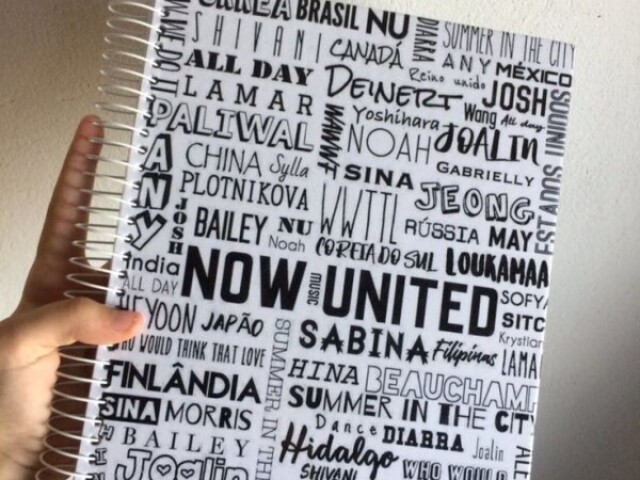 BRASIL NU
SHIVANI
CANADÁ
DIARRA
SUMMER IN THE CITY
ANY
MÉXICO
ALL DAY
Reino unido
DEINERT
JOSH
LAMAR
Wang
All day
Yoshihara
PALIWAL
NOAH
JOALIN
CHINA
Sylla
GABRIELLY
SINA
ANY
PLOTNIKOVA
WWTTL
JEONG
JOSH
BAILEY
NU
RÚSSIA
MAY
Noah
COREIA DO SUL
LOUKAMAA
India
NOW UNITED
music
ALL DAY
SOFYA
HEYOON
JAPÃO
SABINA
Filipinas
Krystian
WHO WOULD THINK THAT LOVE
LAMA
HINA
BEAUCHAMP
FINLÂNDIA
SUMMER IN THE CITY
SINA
MORRIS
SUMMER IN THE
Dance
DIARRA
Joalin
BAILEY
Hidalgo
Joalin
SHIVANI
WHO WOULD